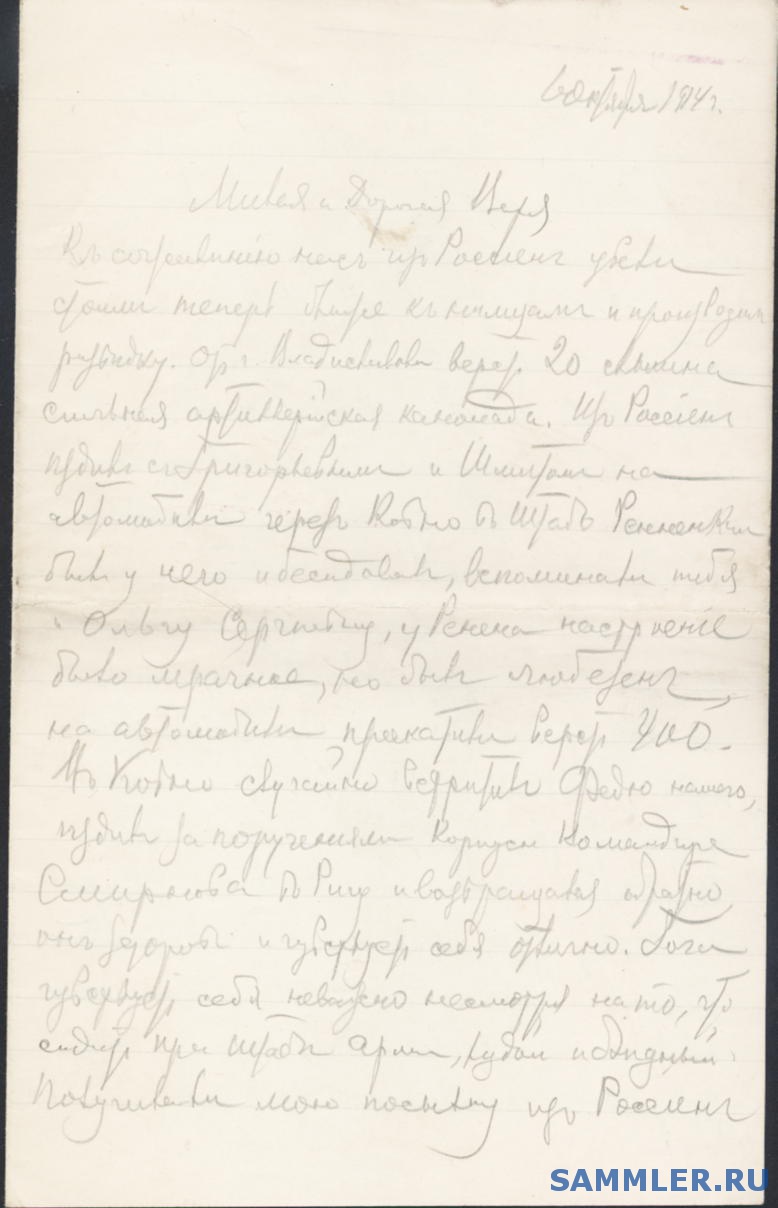 6 октября 1914 г.
Милая и Дорогая Вера
Къ сожалению насъ изъ Россіенъ увели
стоимъ теперь ближе къ немцамъ и производимъ
разведку. От г. Владиславова верст 20 слышна
сильная артиллерійская канонада. Изъ Россіенъ
ездилъ съ Григорьевымъ и Шмитомъ на
автомобиле черезъ Ковно въ Штабъ Ренненкам
былъ у него и беседовалъ, вспоминали тебя
и Ольгу Сергеевну, у Ренена настроеніе
было мрачное, но былъ любезенъ,
на автомобиле прокатили верст 400.
Въ Ковно случайно встретилъ Федю нашего,
ездилъ за поручениями Корпусн Командира
Смирнова въ Ригу и возвращался обратно,
онъ здоровъ и чувствует себя отлично. Гоги
чувствует себя неважно несмотря на то, что
сидит при Штабе Арми, худой и бледный.
Получила ли мою посылку изъ Россіенъ
SAMMLER.RU